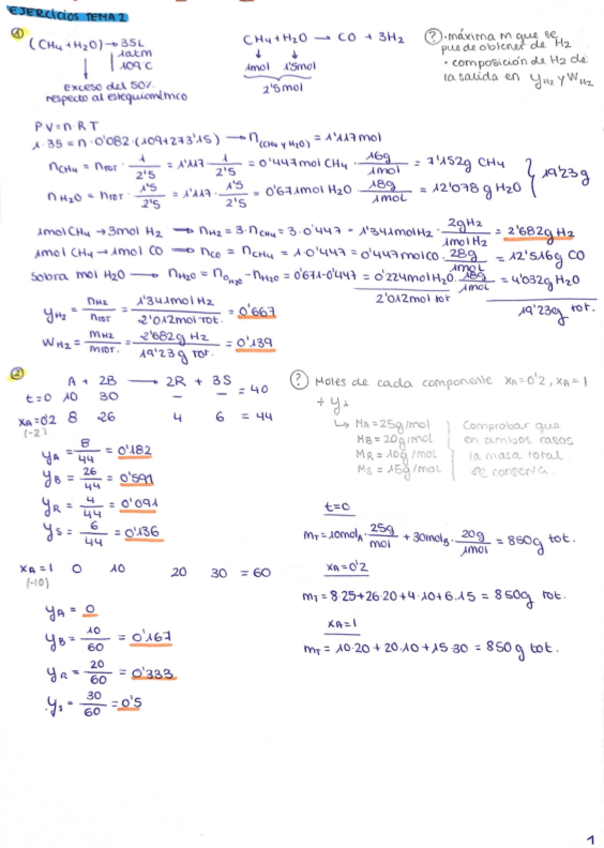 EJERCICIOS TEMA 2
① (CH4+H2O) → 35L
1atm
109ºC
exceso del 50%
respecto al estequiométrico
CH4+H2O → CO + 3H2
1mol 1'5mol
2'5mol
? · máxima m que se
puede obtener de H2
· composición de H2 de
la salida en yH2 y WH2
PV=nRT
1·35=n·0'082·(109+273'15) → n(CH4 y H2O) = 1'117mol
nCH4 = nTOT · 1/2'5 = 1'117 · 1/2'5 = 0'447mol CH4 · 16g/1mol = 7'152g CH4
nH2O = nTOT · 1'5/2'5 = 1'117 · 1'5/2'5 = 0'671mol H2O · 18g/1mol = 12'078g H2O
19'23g
1molCH4 → 3mol H2 → nH2 = 3·nCH4 = 3·0'447 = 1'341molH2 · 2gH2/1molH2 = 2'682g H2
1molCH4 → 1mol CO → nCO = nCH4 = 1·0'447 = 0'447molCO · 28g/1mol = 12'516g CO
Sobra mol H2O → nH2O = n0H2O - nH2O = 0'671-0'447 = 0'224molH2O · 18g/1mol = 4'032g H2O
2'012mol tot
19'23g tot.
yH2 = nH2/nTOT = 1'341molH2/2'012mol TOT. = 0'667
WH2 = mH2/mTOT. = 2'682g H2/19'23g TOT. = 0'139
② A + 2B → 2R + 3S
t=0 10 30 – – = 40
xA=0'2 8 26 4 6 = 44
(-2)
yA = 8/44 = 0'182
yB = 26/44 = 0'591
yR = 4/44 = 0'091
yS = 6/44 = 0'136
xA=1 0 10 20 30 = 60
(-10)
yA = 0
yB = 10/60 = 0'167
yR = 20/60 = 0'333
yS = 30/60 = 0'5
? Moles de cada componente xA=0'2, xA=1
+ yi
↳ MA=25g/mol
MB=20g/mol
MR=10g/mol
MS=15g/mol
Comprobar que
en ambos casos
la masa total
se conserva.
t=0
mT=10molA · 25g/mol + 30molB · 20g/1mol = 850g tot.
xA=0'2
mT=8·25+26·20+4·10+6·15 = 850g tot.
xA=1
mT=10·20+20·10+15·30=850g tot.
1